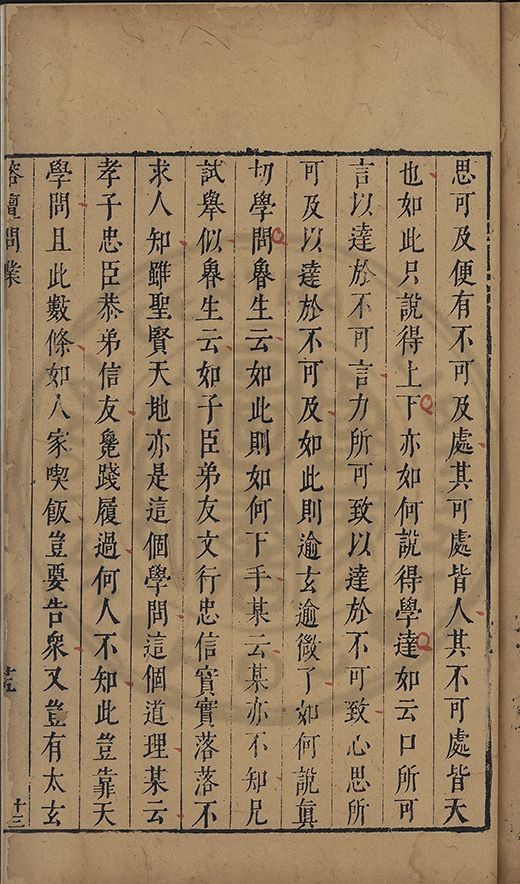 思可及便有不可及處其可處皆人其不可處皆天
也如此只說得上下亦如何說得學達如云口所可
言以達於不可言力所可致以達於不可致心思所
可及以達於不可及如此則逾玄逾微了如何說真
切學問魯生云如此則如何下手某云某亦不知兄
試舉似魯生云如子臣弟友文行忠信實實落落不
求人知雖聖賢天地亦是這個學問這個道理某云
孝子忠臣恭弟信友毚踐履過何人不知此豈靠天
學問且此數條如人家喫飯豈要告衆又豈有太玄
榕壇問業
十三